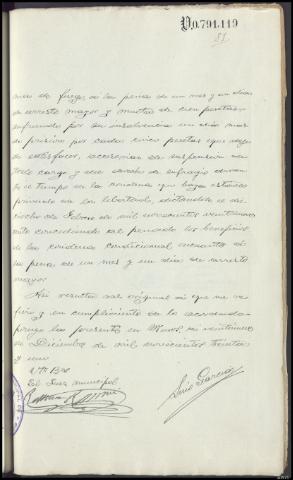 D0.791.119
81
arma de fuego, a las penas de un mes y un dia
de arresto mayor y multa de cien pesetas
sufriendo por su insolvencia un dia mas
de prision por cada cinco pesetas que deje
de satisfacer, accesorias de suspension de
todo cargo y del derecho de sufragio duran
te el tiempo de la condena que haya estado
privado de la libertad, dictandole el di
ciocho de de mil novecientos veintinueve
auto concediendo al penado los beneficios
de la condena condicional en cuanto a
la pena de un mes y un dia de arresto
mayor.
Asi resulta del original a que me re
fiero y en cumplimiento de lo acordado
pongo la presente en a veintinueve
de Diciembre de mil novecientos treinta
y uno
Vto Bno
El Juez municipal
Luis Garcia